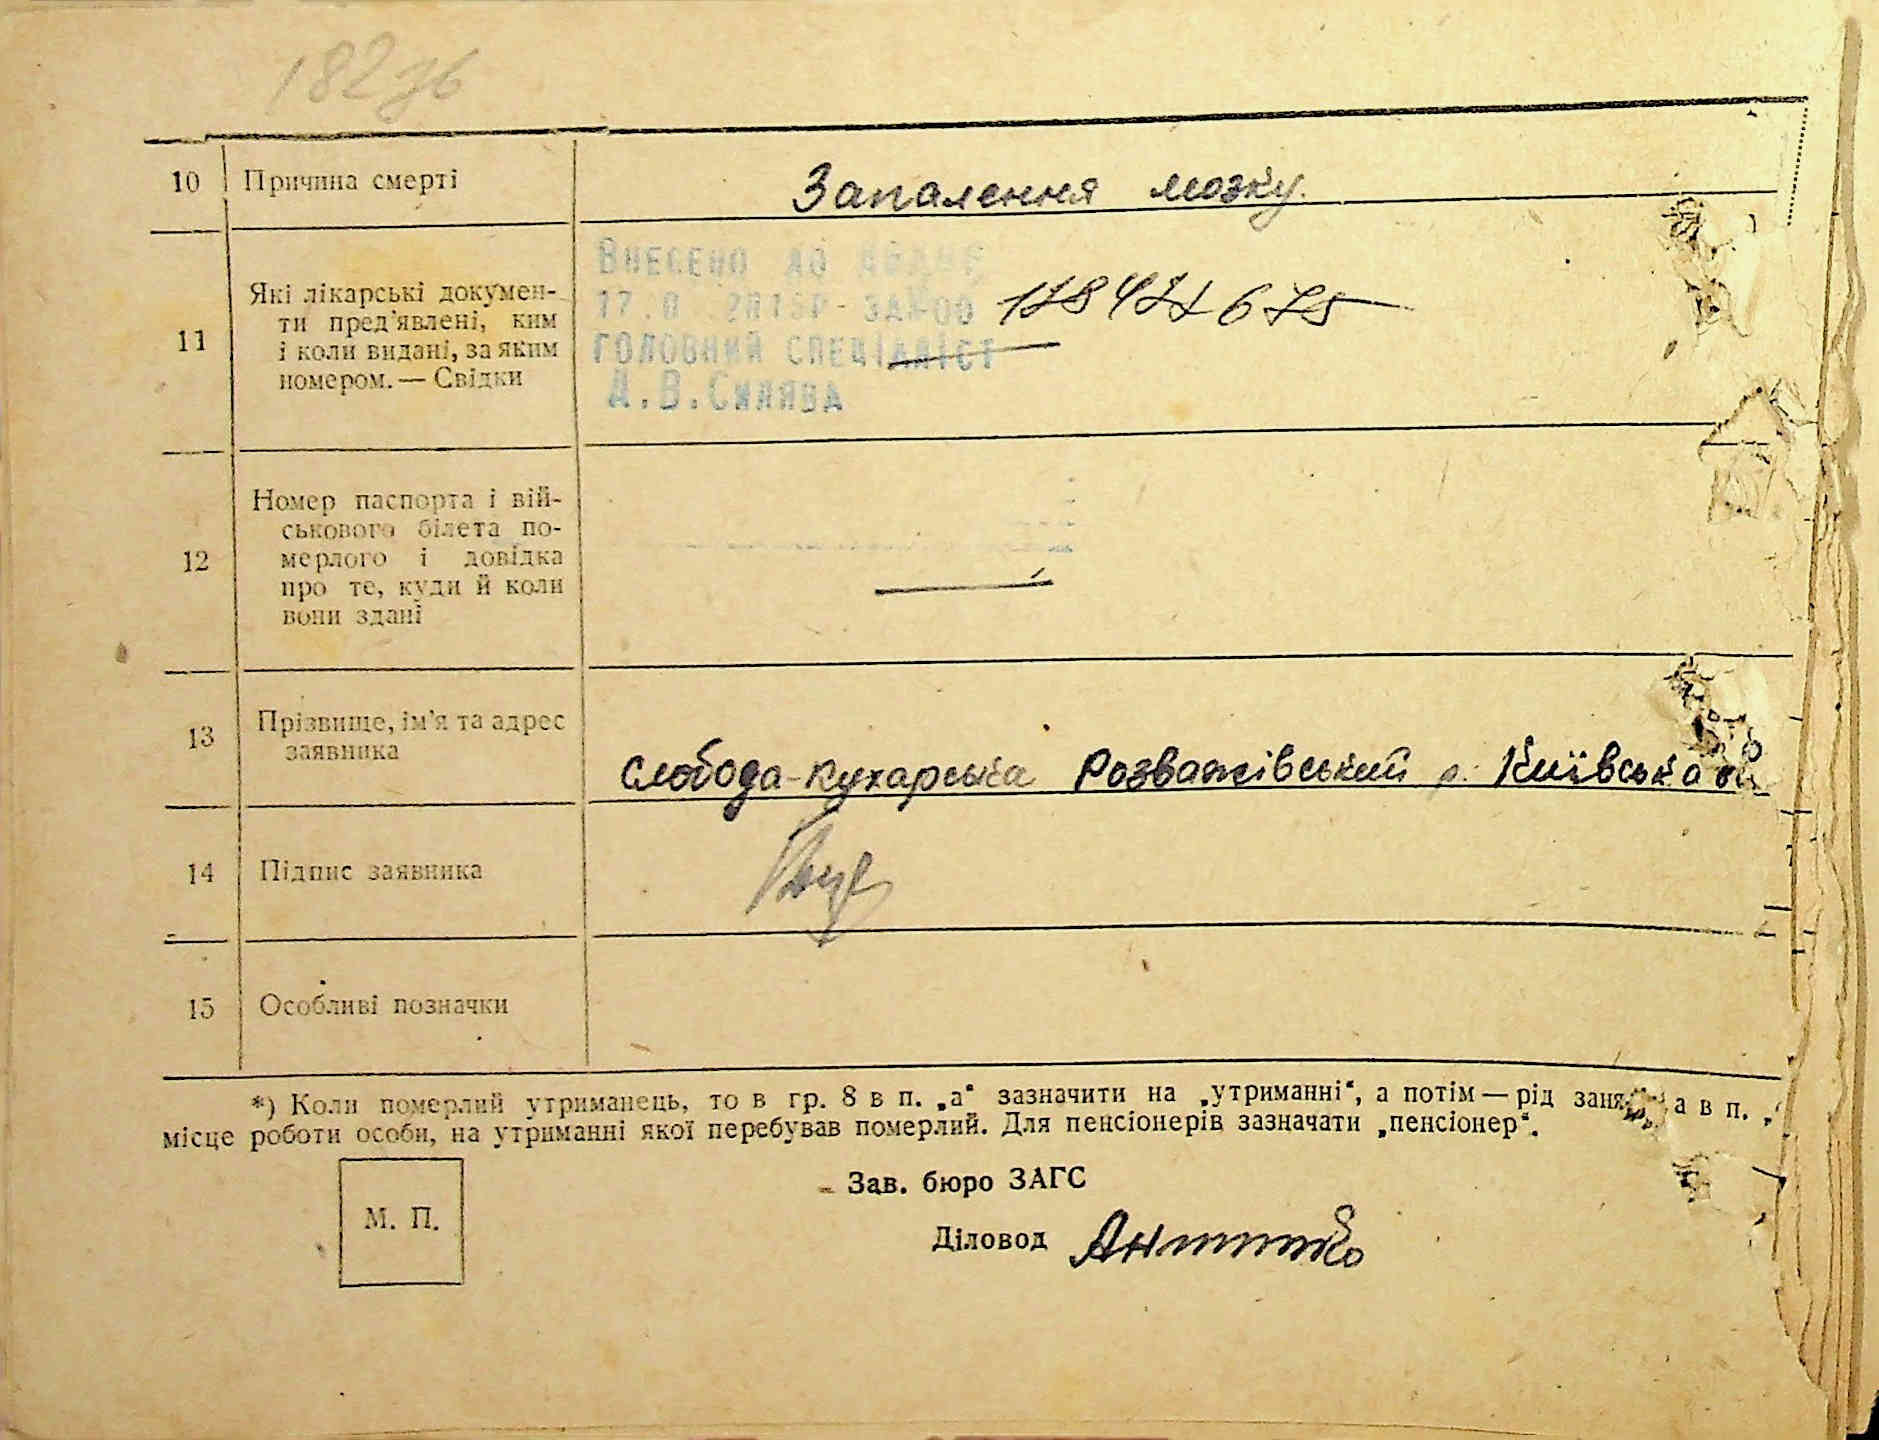 182зв
10 Причина смерті Запалення мозку.
11 Які лікарські докумен-
ти пред'явлені, ким
і коли видані, за яким
номером. — Свідки
Внесено до
17.0
головний спеціаліст
А.В.Силява
12 Номер паспорта і вій-
ськового білета по-
мерлого і довідка
про те, куди й коли
вони здані
13 Прізвище, ім'я та адрес
заявника
Слобода-Кухарська Розважівський р. Київська
14 Підпис заявника
15 Особливі позначки
*) Коли померлий утриманець, то в гр. 8 в п. „а“ зазначити на „утриманні“, а потім — рід заня а в п. „
місце роботи особи, на утриманні якої перебував померлий. Для пенсіонерів зазначати „пенсіонер“.
М. П.
Зав. бюро ЗАГС
Діловод